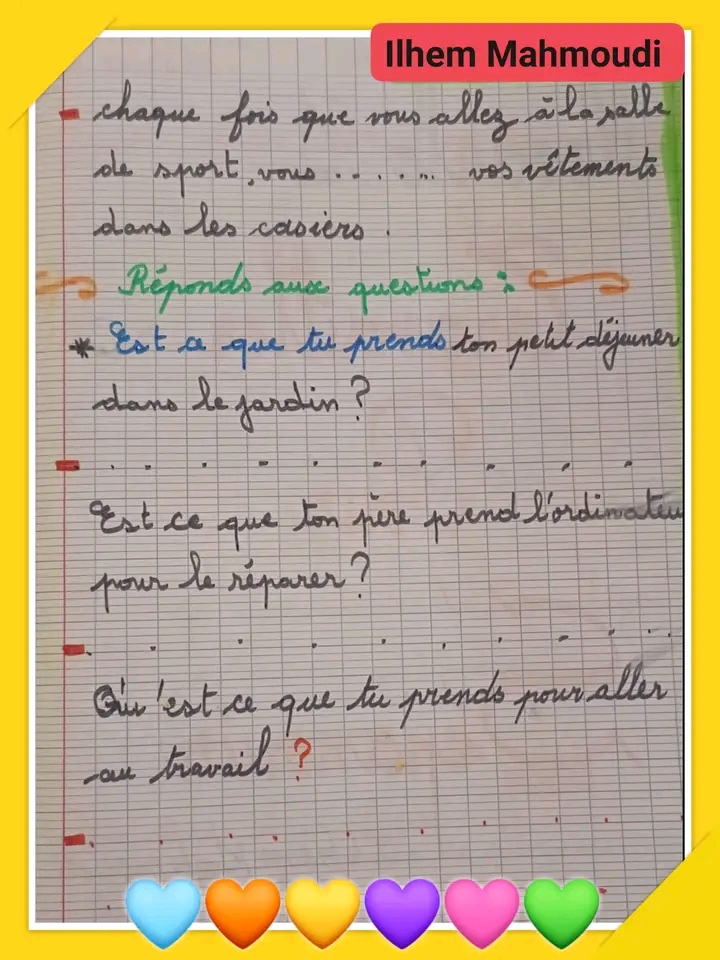 Ilhem Mahmoudi
- chaque fois que vous allez à la salle
de sport, vous . . . . . . .. vos vêtements
dans les casiers .
Réponds aux questions :
* Est ce que tu prends ton petit déjeuner
dans le jardin ?
- . . . . . . . . . .
Est ce que ton père prend l'ordinateu
pour le réparer ?
- . . . . . . . . . .
Qu'est ce que tu prends pour aller
au travail ?
- . . . . . . . .